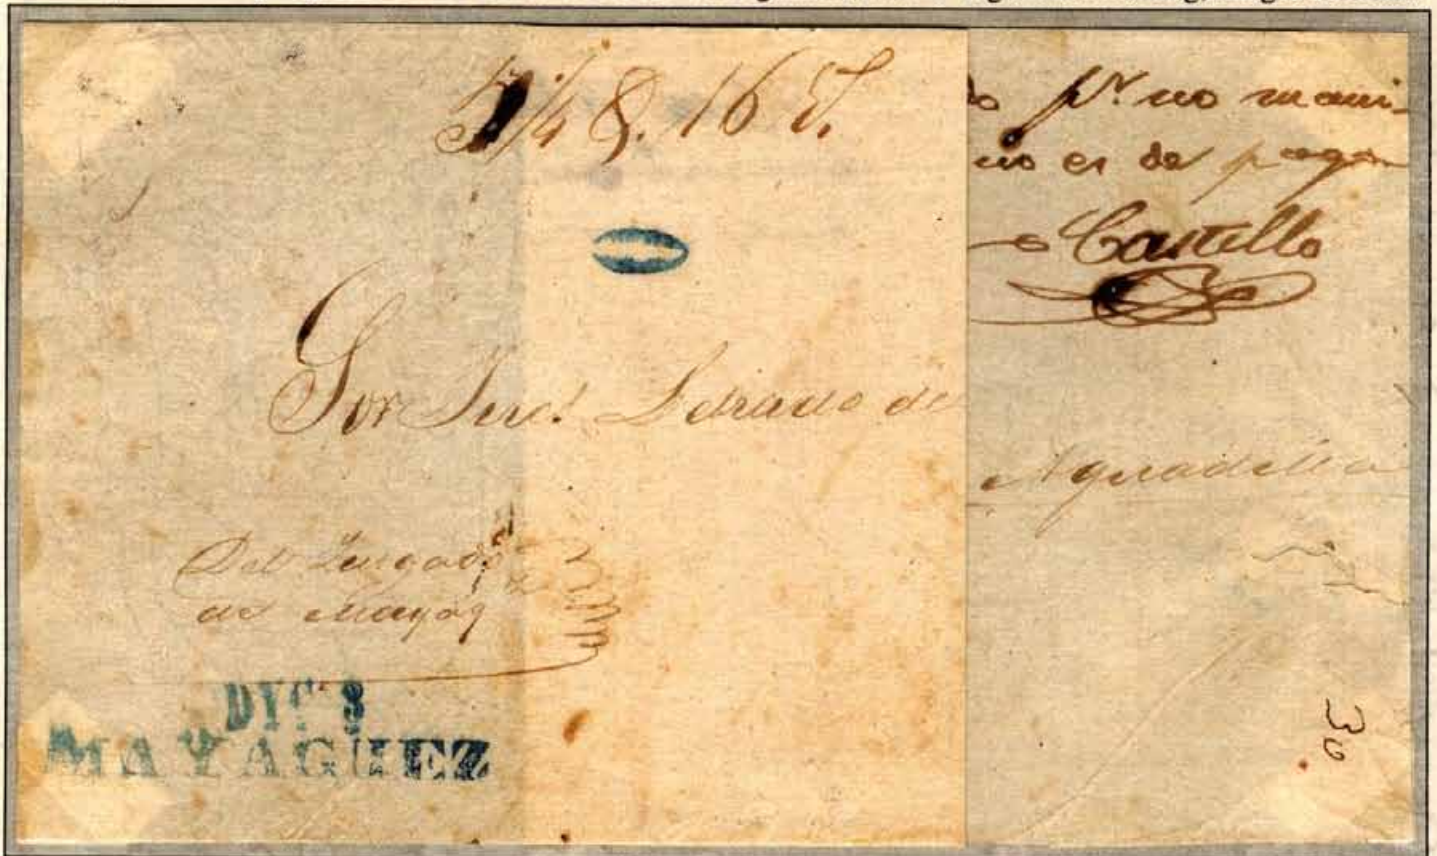 5 1/4 8. 16
do pr. no mani-
no es de pagar
Castillo
Sor Letrado de
Aguadilla
Del Juzgado
de Mayag
DYC 8
MAYAGUEZ
30